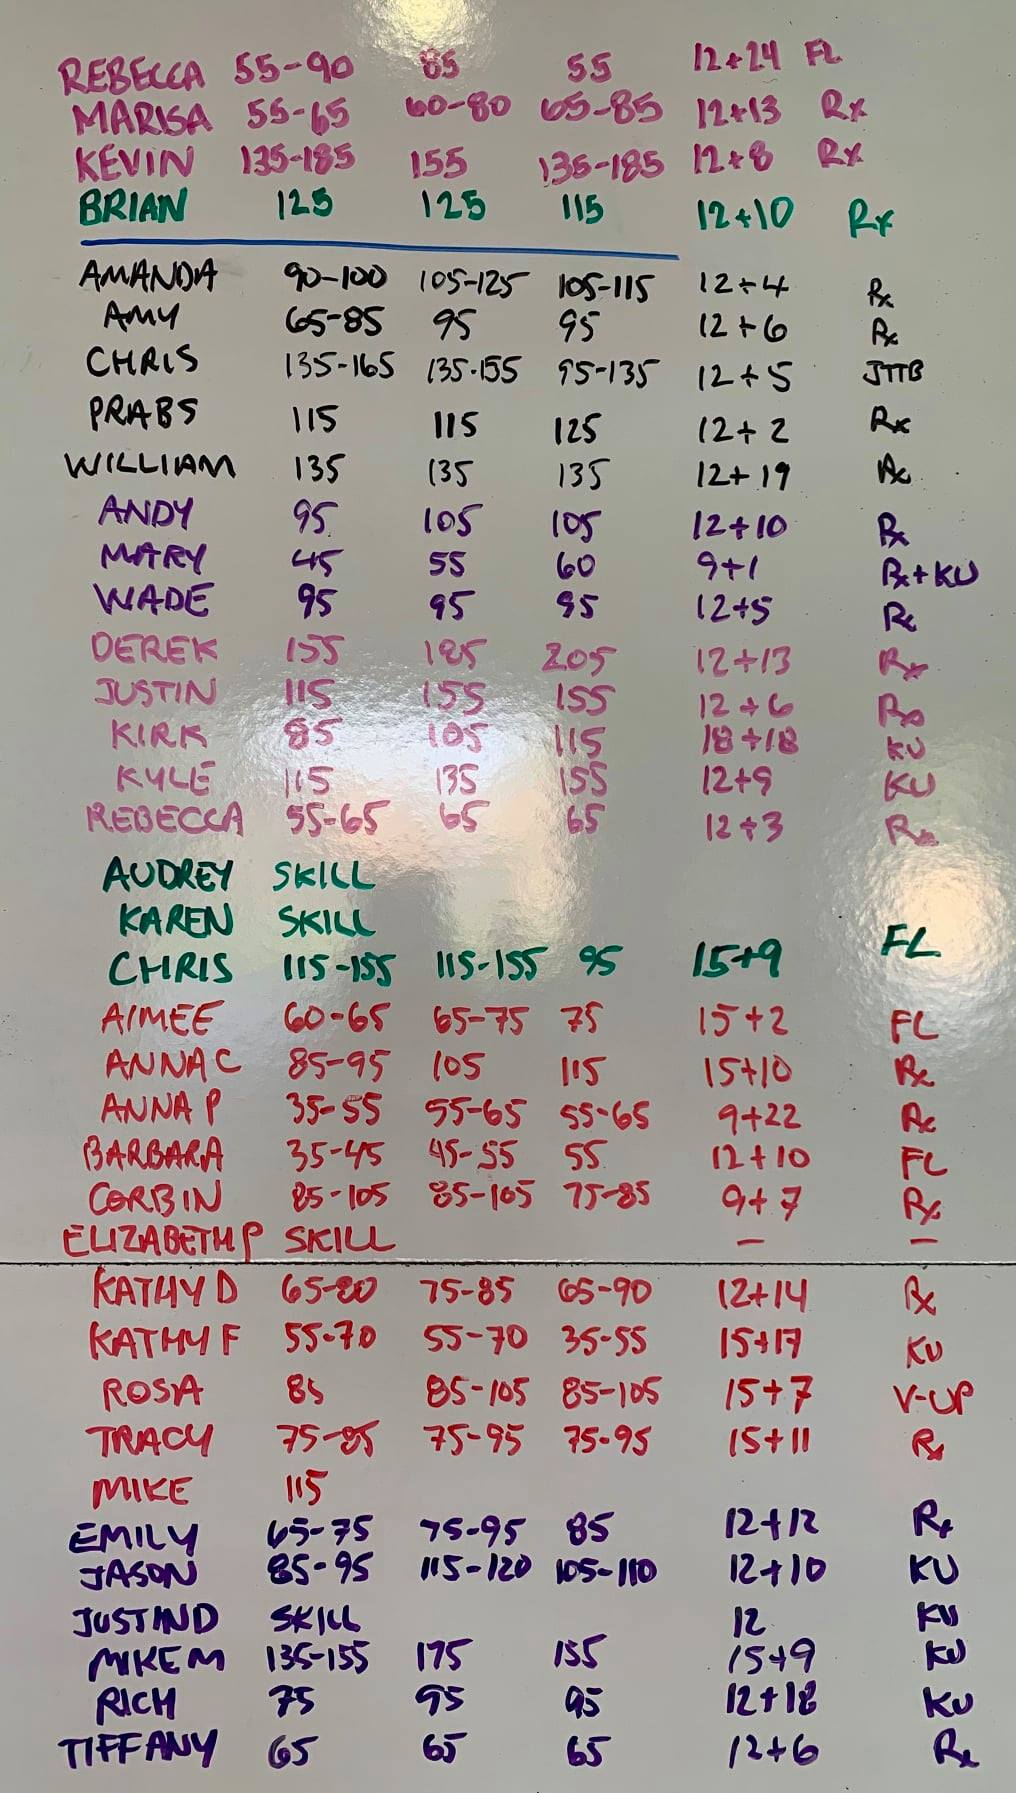 REBECCA 55-90 85 55 12+24 FL
MARISA 55-65 60-80 65-85 12+13 Rx
KEVIN 135-185 155 135-185 12+8 Rx
BRIAN 125 125 115 12+10 Rx
AMANDA 90-100 105-125 105-115 12+4 Rx
AMY 65-85 95 95 12+6 Rx
CHRIS 135-165 135-155 95-135 12+5 JTTB
PRABS 115 115 125 12+2 Rx
WILLIAM 135 135 135 12+19 Rx
ANDY 95 105 105 12+10 Rx
MARY 45 55 60 9+1 Rx+KU
WADE 95 95 95 12+5 Rx
DEREK 155 185 205 12+13 Rx
JUSTIN 115 155 155 12+6 Rx
KIRK 85 105 115 18+18 KU
KYLE 115 135 155 12+9 KU
REBECCA 55-65 65 65 12+3 Rx
AUDREY SKILL
KAREN SKILL
CHRIS 115-155 115-155 95 15+9 FL
AIMEE 60-65 65-75 75 15+2 FL
ANNA C 85-95 105 115 15+10 Rx
ANNA P 35-55 55-65 55-65 9+22 Rx
BARBARA 35-45 45-55 55 12+10 FL
CORBIN 85-105 85-105 75-85 9+7 Rx
ELIZABETH P SKILL — —
KATHY D 65-80 75-85 65-90 12+14 Rx
KATHY F 55-70 55-70 35-55 15+17 KU
ROSA 85 85-105 85-105 15+7 V-UP
TRACY 75-85 75-95 75-95 15+11 Rx
MIKE 115
EMILY 65-75 75-95 85 12+12 Rx
JASON 85-95 115-120 105-110 12+10 KU
JUSTIN D SKILL 12 KU
MIKE M 135-155 175 155 15+9 KU
RICH 75 95 95 12+18 KU
TIFFANY 65 65 65 12+6 Rx